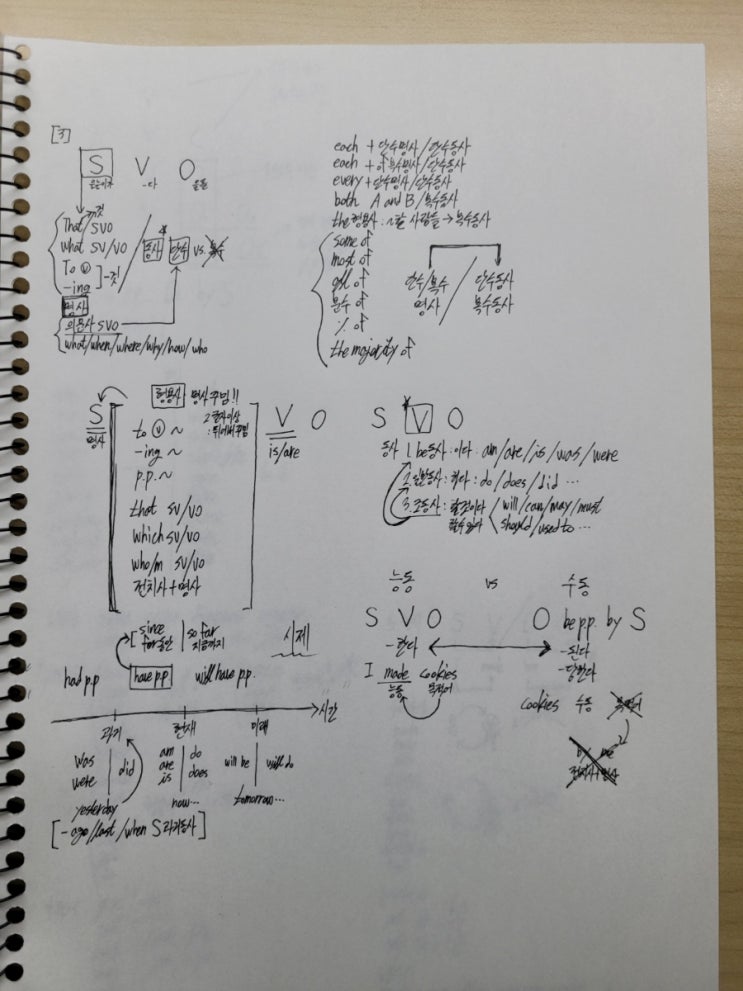 [3]
S V O
은는이가 -다 을를
That SVO 것
what SV/VO
To ⓥ
-ing
]-것
동사 단수 vs. 복수
명사
의문사 SVO
what/when/where/why/how/who
each + 단수명사/단수동사
each + of 복수명사/단수동사
every + 단수명사/단수동사
both A and B / 복수동사
the 형용사 : ~할 사람들 → 복수동사
some of
most of
all of
분수 of
% of
the majority of
단수/복수 명사 / 단수동사 복수동사
형용사 명사 꾸밈!!
2글자이상
: 뒤에서 꾸밈
S V O
명사 is/are
to ⓥ ~
-ing ~
p.p. ~
that SV/VO
which SV/VO
who/m SV/VO
전치사 + 명사
S V O
동사 1. be동사 : 이다 : am/are/is/was/were
2. 일반동사 : 하다 : do/does/did ...
3. 조동사 : 할것이다 / will/can/may/must
할수있다 should/used to ...
능동 vs 수동
S V O O be pp. by S
-한다 -된다
-당한다
I made cookies
능동 목적어
cookies 수동 목적어
by me
전치사+명사
since
for 동안
so far
지금까지
시제
had p.p have p.p. will have p.p.
시간
과거 현재 미래
was
were
did
am
are
is
do
does
will be will do
yesterday now... tomorrow...
[- ago/last/when S 과거동사]